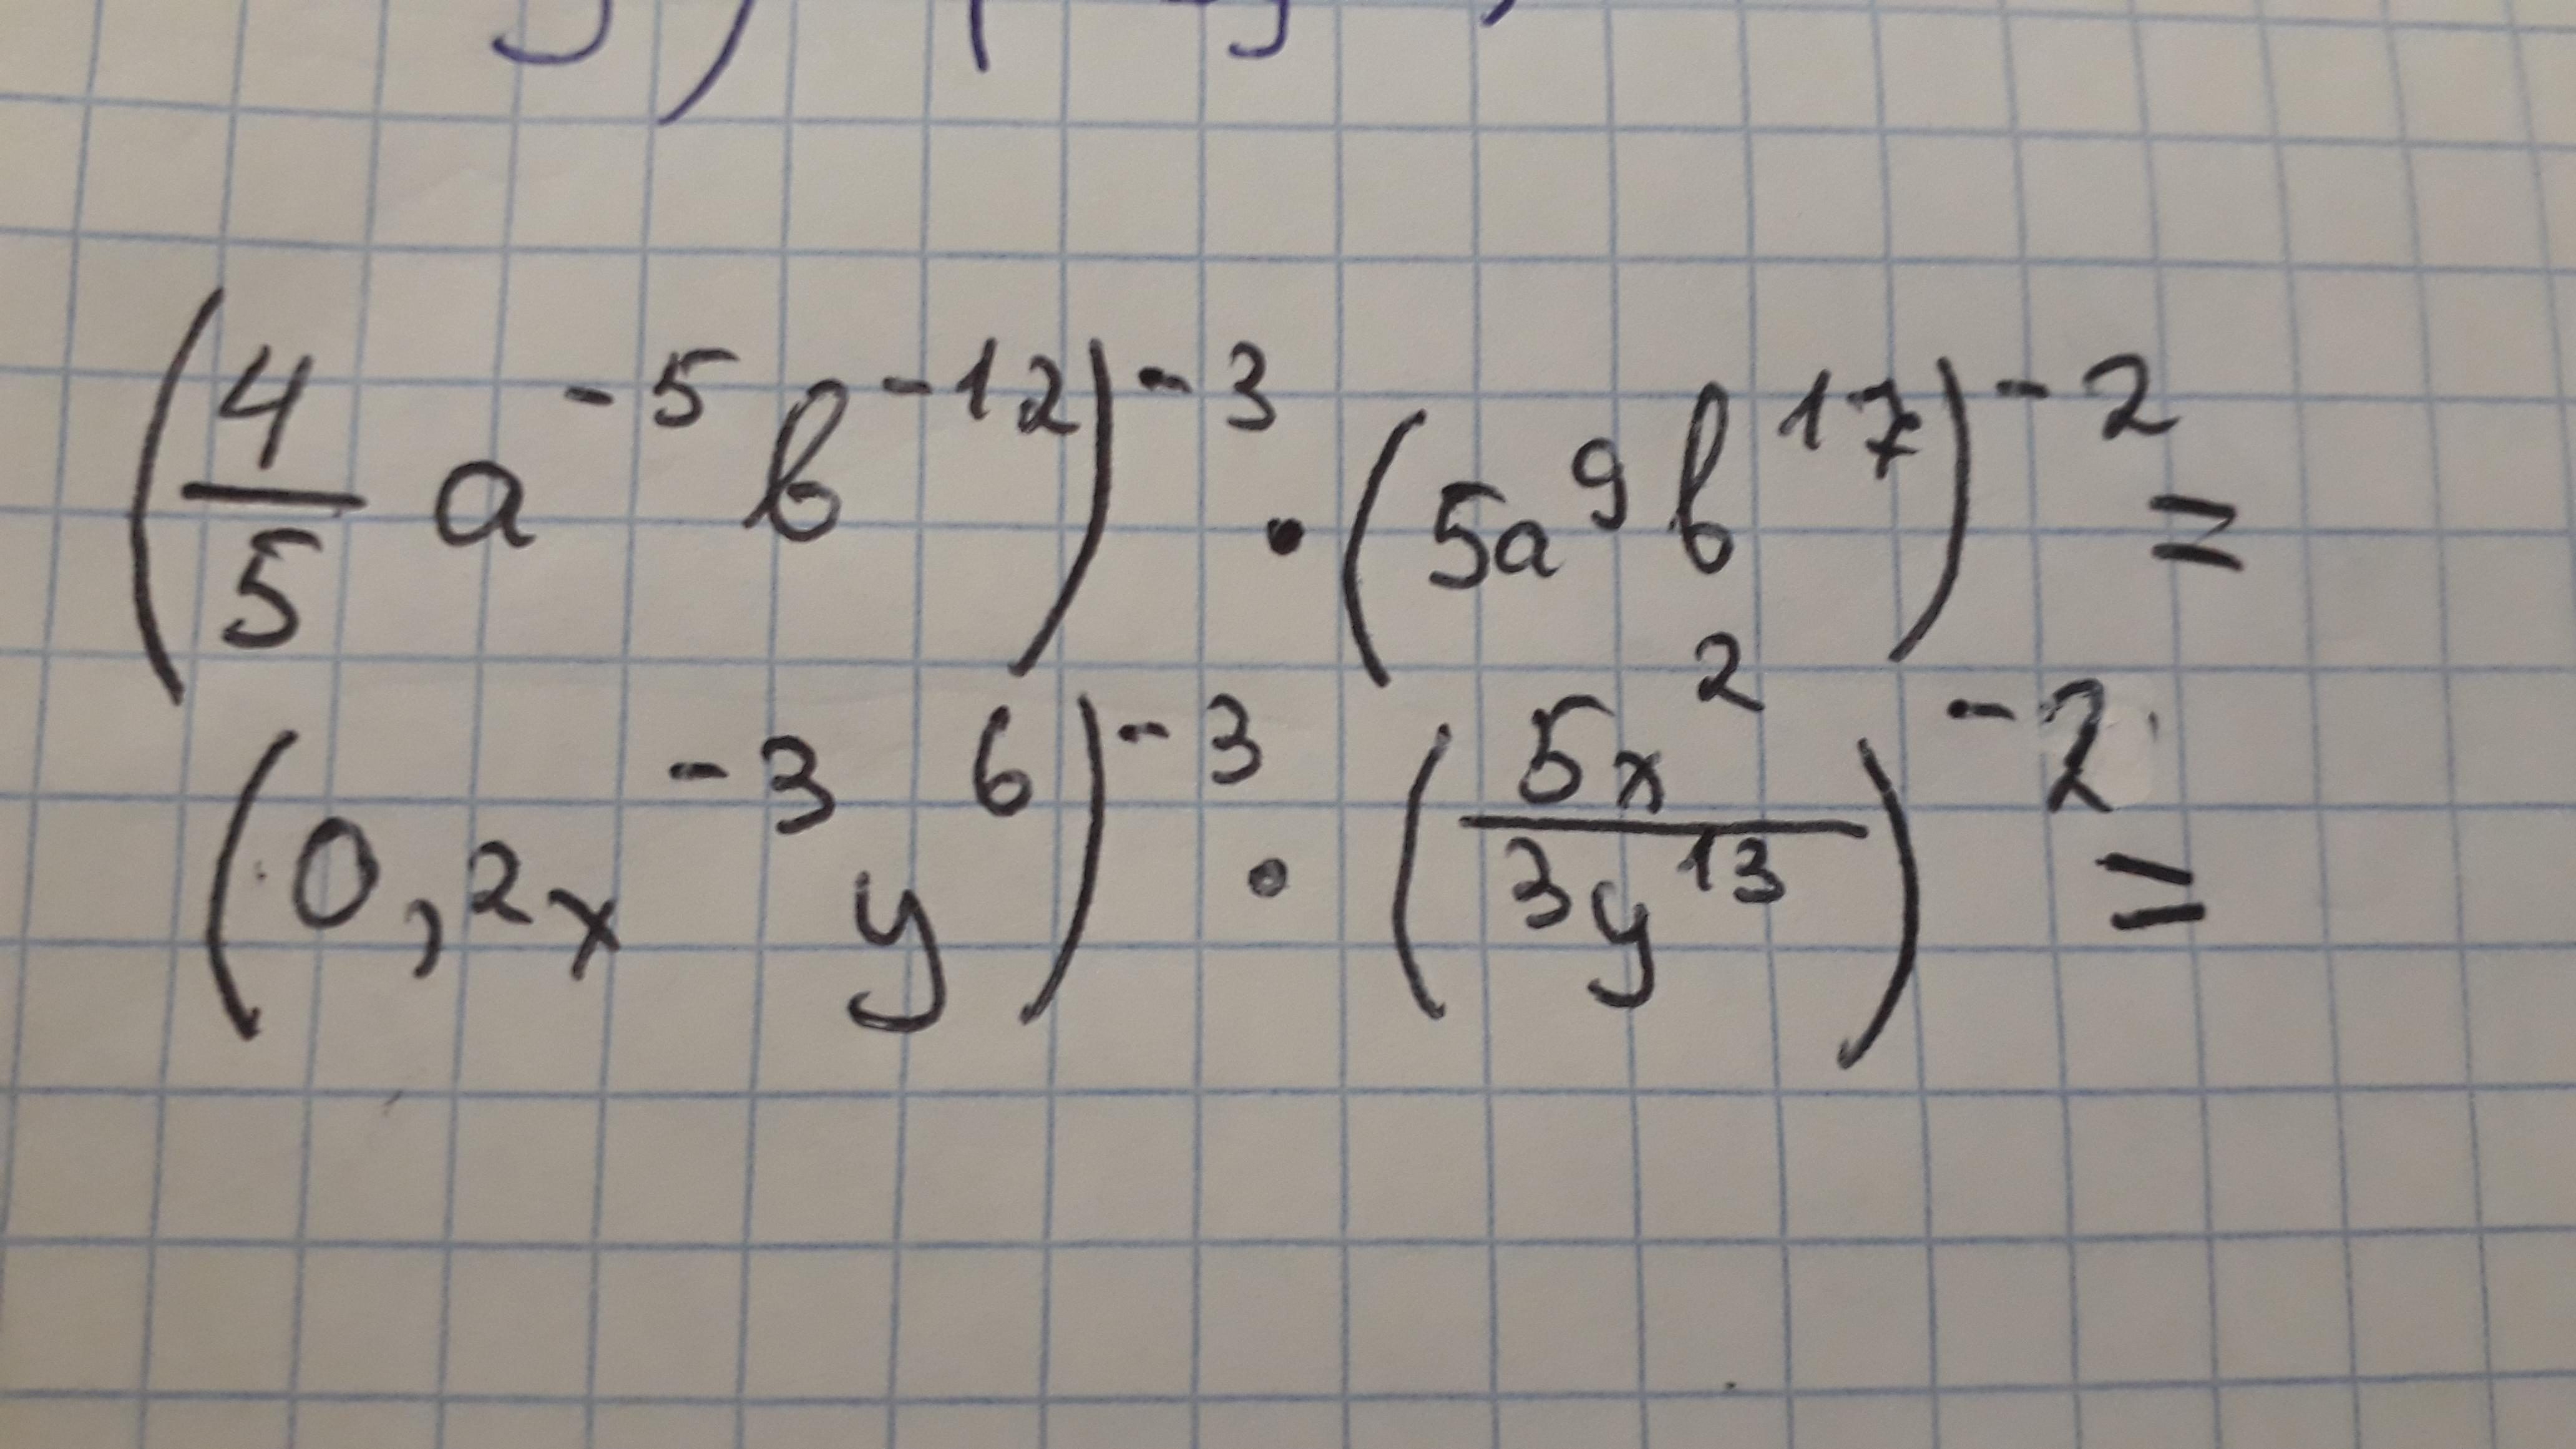 (4/5 a^-5 b^-12)^-3 · (5a^9 b^17)^-2 =
(0,2x^-3 y^6)^-3 · (5x^2/3y^13)^-2 =